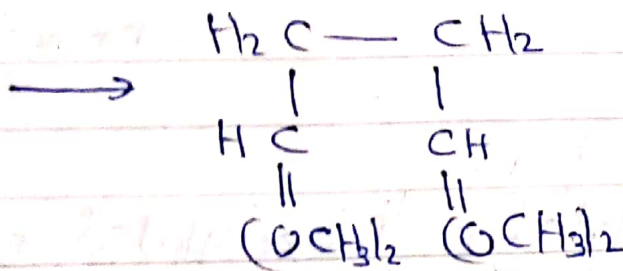 H₂C — CH₂
⟶ | |
HC CH
|| ||
(OCH₃)₂ (OCH₃)₂